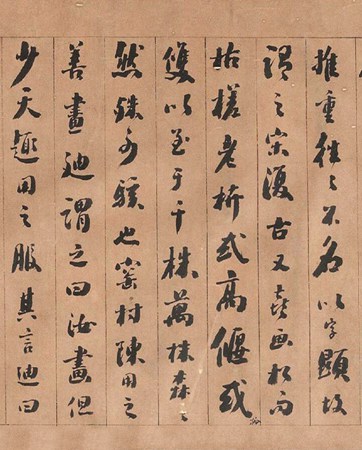 推重往〻不名以字顯故
謂之宋復古又喜画松而
枯槎老枿或高偃或
雙以至于千株萬株森〻
然殊可駭也窰村陳用之
善畫迪謂之曰汝畫但
少天趣用之服其言迪曰